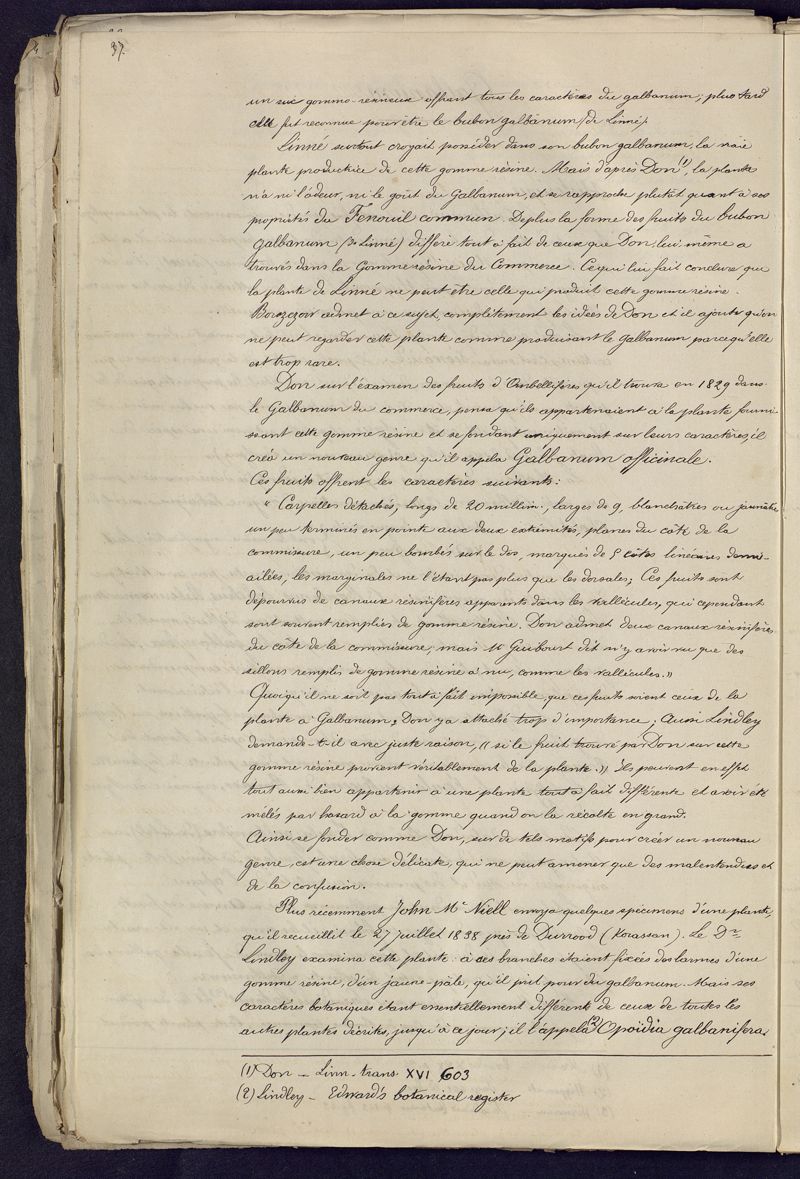 37.
un suc gommo-résineux offrant tous les caractères du galbanum; plus tard
elle fut reconnue pour être le bubon galbanum (de Linné).
Linné surtout croyait posséder dans son bubon galbanum, la vraie
plante productrice de cette gomme résine. Mais d'après Don (1), la plante
n'a ni l'odeur, ni le goût du Galbanum, et se rapproche plutôt quant à ses
propriétés du Fenouil commun. De plus la forme des fruits du bubon
galbanum (de Linné) diffère tout à fait de ceux que Don, lui même a
trouvés dans la Gomme résine du Commerce. Ce qui lui fait conclure que
la plante de Linné ne peut être celle qui produit cette gomme résine.
admet à ce sujet, complètement les idées de Don et il ajoute qu'on
ne peut regarder cette plante comme produisant le galbanum parce qu'elle
est trop rare.
Don sur l'examen des fruits d'Ombellifères qu'il trouva en 1829 dans
le Galbanum du commerce, pensa qu'ils appartenaient à la plante fournis-
sant cette gomme résine et se fondant uniquement sur leurs caractères, il
créa un nouveau genre qu'il appela Galbanum officinale.
Ces fruits offrent les caractères suivants:
" Carpelles détachés, longs de 20 millim., larges de 9, blanchâtres ou jaunâtres
un peu terminés en pointe aux deux extrémités, planes du côté de la
commissure, un peu bombés sur le dos, marqués de 5 côtes linéaires demi-
ailées, les marginales ne l'étant pas plus que les dorsales; Ces fruits sont
dépourvus de canaux résinifères apparents dans les vallécules, qui cependant
sont souvent remplies de gomme résine. Don admet deux canaux résinifères
du côté de la commissure, mais Mr Guibourt dit n'y avoir vu que des
sillons remplis de gomme résine à nu, comme les vallécules."
Quoiqu'il ne soit pas tout à fait impossible, que ces fruits soient ceux de la
plante à Galbanum, Don y a attaché trop d'importance; Aussi Lindley
demande-t-il avec juste raison, "si le fruit trouvé par Don sur cette
gomme résine provient véritablement de la plante." Ils peuvent en effet
tout aussi bien appartenir à une plante tout à fait différente et avoir été
mêlés par hasard à la gomme quand on la récolte en grand.
Ainsi se fonder comme Don, sur de tels motifs pour créer un nouveau
genre, est une chose délicate, qui ne peut amener que des malentendus et
de la confusion.
Plus récemment John Mc Niell envoya quelques spécimens d'une plante,
qu'il recueillit le 27 juillet 1838 près de Durrood (Korassan). Le Dr
Lindley examina cette plante: à ses branches étaient fixées des larmes d'une
gomme résine, d'un jaune-pâle, qu'il prit pour du galbanum. Mais ses
caractères botaniques étant essentiellement différents de ceux de toutes les
autres plantes décrites, jusqu'à ce jour; il l'appela (2) Opoïdia galbanifera.
(1) Don – Linn. trans. XVI 603
(2) Lindley – Edward's botanical register